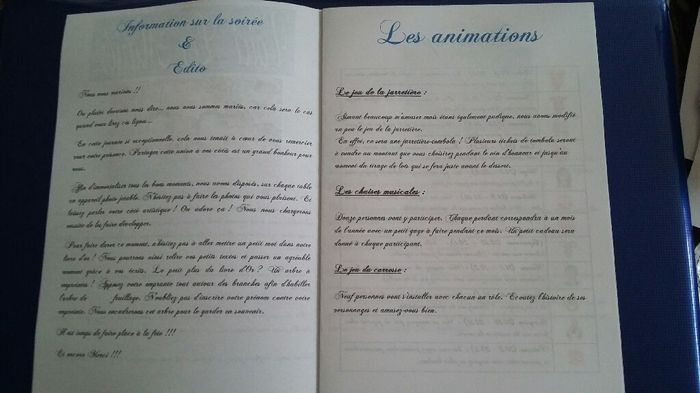 Information sur la soirée
&
Edito
Nous nous marions !!
On plutôt devrions nous dire... nous nous sommes mariés, car cela sera le cas
quand vous lirez ces lignes...
En cette journée si exceptionnelle, cela nous tenait à cœur de vous remercier
pour votre présence. Partager cette union à vos côtés est un grand bonheur pour
nous.
Afin d'immortaliser tous les bons moments, nous avons disposés, sur chaque table
un appareil photo jetable. N'hésitez pas à faire les photos qui vous plaisent. Et
laissez parler votre côté artistique ! On adore ça ! Nous nous chargerons
ensuite de les faire développer.
Pour faire durer ce moment, n'hésitez pas à aller mettre un petit mot dans notre
livre d'or ! Nous pourrons ainsi relire vos petits textes et passer un agréable
moment grâce à vos écrits. Le petit plus du livre d'Or ? Un arbre à
empreintes ! Apposez votre empreinte tout autour des branches afin d'habiller
l'arbre de feuillage. N'oubliez pas d'inscrire votre prénom contre votre
empreinte. Nous encadrerons cet arbre pour le garder en souvenir.
Il est temps de faire place à la fête !!!
Et encore Merci !!!
Les animations
Le jeu de la jarretière :
Aimant beaucoup s'amuser mais étant également pudique, nous avons modifié
un peu le jeu de la jarretière.
En effet, ce sera une jarretière-tombola ! Plusieurs tickets de tombola seront
à vendre au montant que vous choisirez pendant le vin d'honneur et jusqu'au
moment du tirage de lots qui se fera juste avant le dessert.
Les chaises musicales :
Douze personnes vont y participer. Chaque perdant correspondra à un mois
de l'année avec un petit gage à faire pendant ce mois. Un petit cadeau sera
donné à chaque participant.
Le jeu du carrosse :
Neuf personnes vont s'installer avec chacun un rôle. Ecoutez l'histoire de ses
personnages et amusez-vous bien.